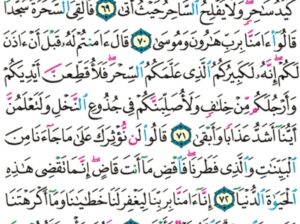 كَيْدُ سَٰحِرٍۢ وَلَا يُفْلِحُ ٱلسَّاحِرُ حَيْثُ أَتَىٰ ٦٩ فَأُلْقِىَ ٱلسَّحَرَةُ سُجَّدًۭا
قَالُوٓا۟ ءَامَنَّا بِرَبِّ هَٰرُونَ وَمُوسَىٰ ٧٠ قَالَ ءَامَنتُمْ لَهُۥ قَبْلَ أَنْ ءَاذَنَ
لَكُمْ إِنَّهُۥ لَكَبِيرُكُمُ ٱلَّذِى عَلَّمَكُمُ ٱلسِّحْرَ فَلَأُقَطِّعَنَّ أَيْدِيَكُمْ
وَأَرْجُلَكُم مِّنْ خِلَٰفٍۢ وَلَأُصَلِّبَنَّكُمْ فِى جُذُوعِ ٱلنَّخْلِ وَلَتَعْلَمُنَّ
أَيُّنَآ أَشَدُّ عَذَابًۭا وَأَبْقَىٰ ٧١ قَالُوا۟ لَن نُّؤْثِرَكَ عَلَىٰ مَا جَآءَنَا مِنَ
ٱلْبَيِّنَٰتِ وَٱلَّذِى فَطَرَنَا فَٱقْضِ مَآ أَنتَ قَاضٍ إِنَّمَا تَقْضِى هَٰذِهِ
ٱلْحَيَوٰةَ ٱلدُّنْيَآ ٧٢ إِنَّآ ءَامَنَّا بِرَبِّنَا لِيَغْفِرَ لَنَا خَطَٰيَٰنَا وَمَآ أَكْرَهْتَنَا